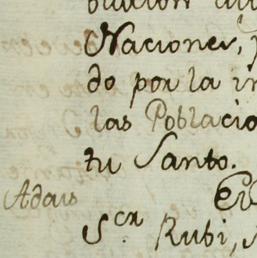 Naciones,
do por la in
las Poblacio
tu Santo.
Adais
El
S.or Rubi,